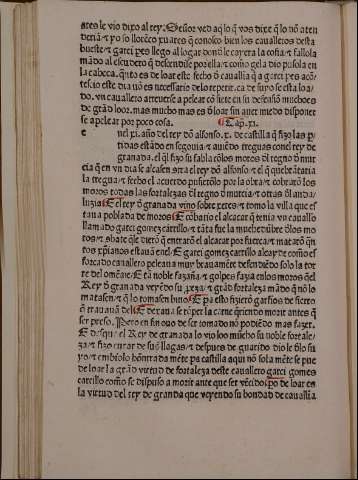 ares le vio dixo al rey. Señor ved aq̃ lo q̃ vos dixe q̃ lo nõ aten
deriã ⁊ yo so llorẽço xuares q̃ conosco bien los caualleros desta
hueste ⁊ garci peres llego al logar donde cayera la cofia ⁊ fallola
mãdo al escudero q̃ decendiese por ella ⁊ como gela dio pusola en
la cabeça. quãto es de loar este fecho d̃ caualliã q̃ a garci peres acõ
tes. io este dia nõ es necesario de lo repetir. ca de suyo se esta loã
do. vn cauallero atreuerse a pelear cõ siete en su deseado muchoes
de grãd loor. mas mucho mas es d̃ loar sin auer miedo disponer
se a pelear por poco cosa. ¶ Cap̃. xi.
e nel xi. año del rey dõn alfonso. x. de castilla q̃ fizo las p̃
tidas estãdo en segouia ⁊ auiẽdo treguas con el rey de
granada. el q̃l fizo su fabla cõlos moros del regno d̃ mur
cia q̃ en vn dia se alcasen cõtra el rey dõn alfonso ⁊ el q̃ quebrãtaria
la tregua ⁊ fecho el acuerdo pusierõlo por la obra ⁊ cobrarõ los
moros todas las fortalezas del regno d̃ murcia ⁊ otras d̃l anda
luzia ¶ E el rey d̃ granada vino sobre xeres ⁊ tomo la villa que es
taua poblada de moros ¶ E cõbatio el alcaçar q̃ tenia vn cauallo
llamado garci gomez carrillo ⁊ tãta fue la muchedũbre d̃los mo
ros ⁊ cõbate q̃le dierõ q̃ entrarõ el alcaçar por fuerça ⁊ matarõ q̃n
tos xp̃ianos estauã enel ¶ E garci gomez carrillo alcayde como es
forçado cauallero peleaua muy brauamẽte defendiẽdo solo la tor
re del omenaje ¶ E tã noble fazaña ⁊ golpes fazia en los moros q̃el
Rey d̃ granada veyẽdo su p̃eza ⁊ grãd fortaleza mãdo q̃ nõ lo
matasen ⁊ q̃ lo tomasen biuo ¶ E pa esto fizierõ garfios de fierro
q̃ trauauã del ¶ E dexaua se rõper la carne queriẽdo morir antes q̃
ser preso. Pero en fin ouo de ser tomado nõ podiẽdo mas fazer.
E desque el Rey de granada lo vio loo mucho su noble fortale
za ⁊ fizo curar de sus llagas ⁊ despues de guarido dio le d̃lo su
yo ⁊ embiolo hõrrada mẽte pa castilla aqui nõ sola mẽte se pue
de loar la grãd virtud de fortaleza deste cauallero garci gomes
carrillo como se dispuso a morir ante que ser vẽcido ¶ pero de loar es
la virtud del rey de granda que veyendo su bondad de cauallia